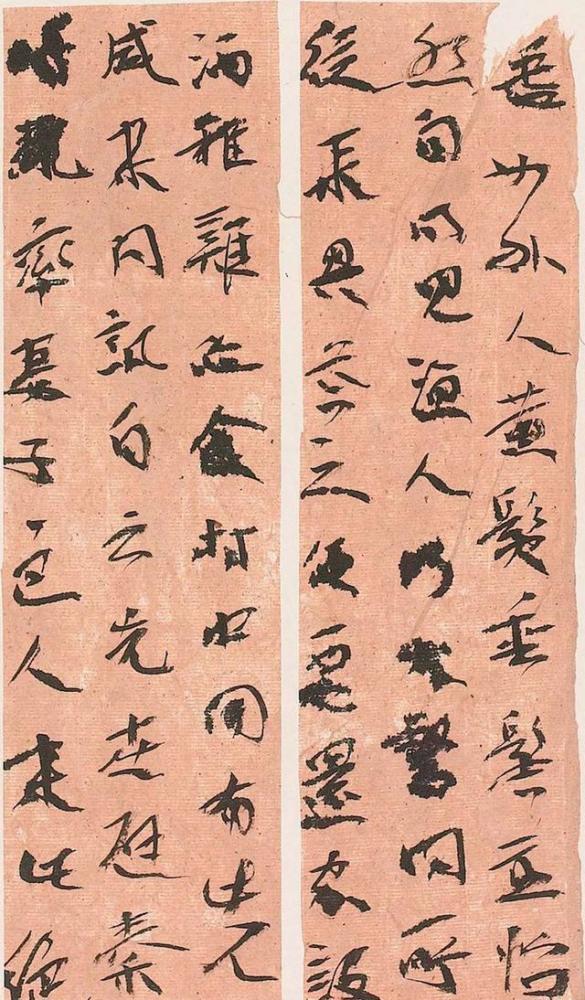 悉如外人黄髮垂髫並怡
然自樂見漁人乃大驚問所
從來具答之便要還家設
酒殺雞作食村中聞有此人
咸來問訊自云先世避秦
時亂率妻子邑人來此絕